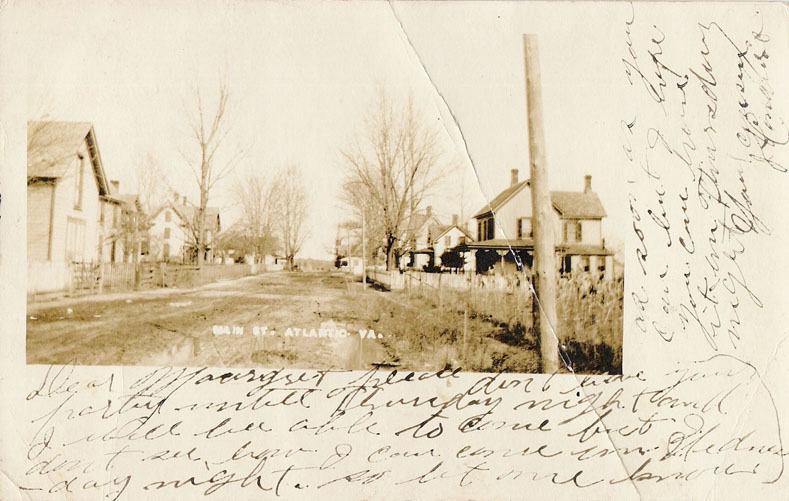 MAIN ST. ATLANTIC. VA.
Dear Maargret please don't have you
party untill Thursday night and
I will be able to come but I
don't see how I can come on Wednes
-day night. so let me know
as soon as you
can but I hope
you can have
it on Thursday
night Your Cousin